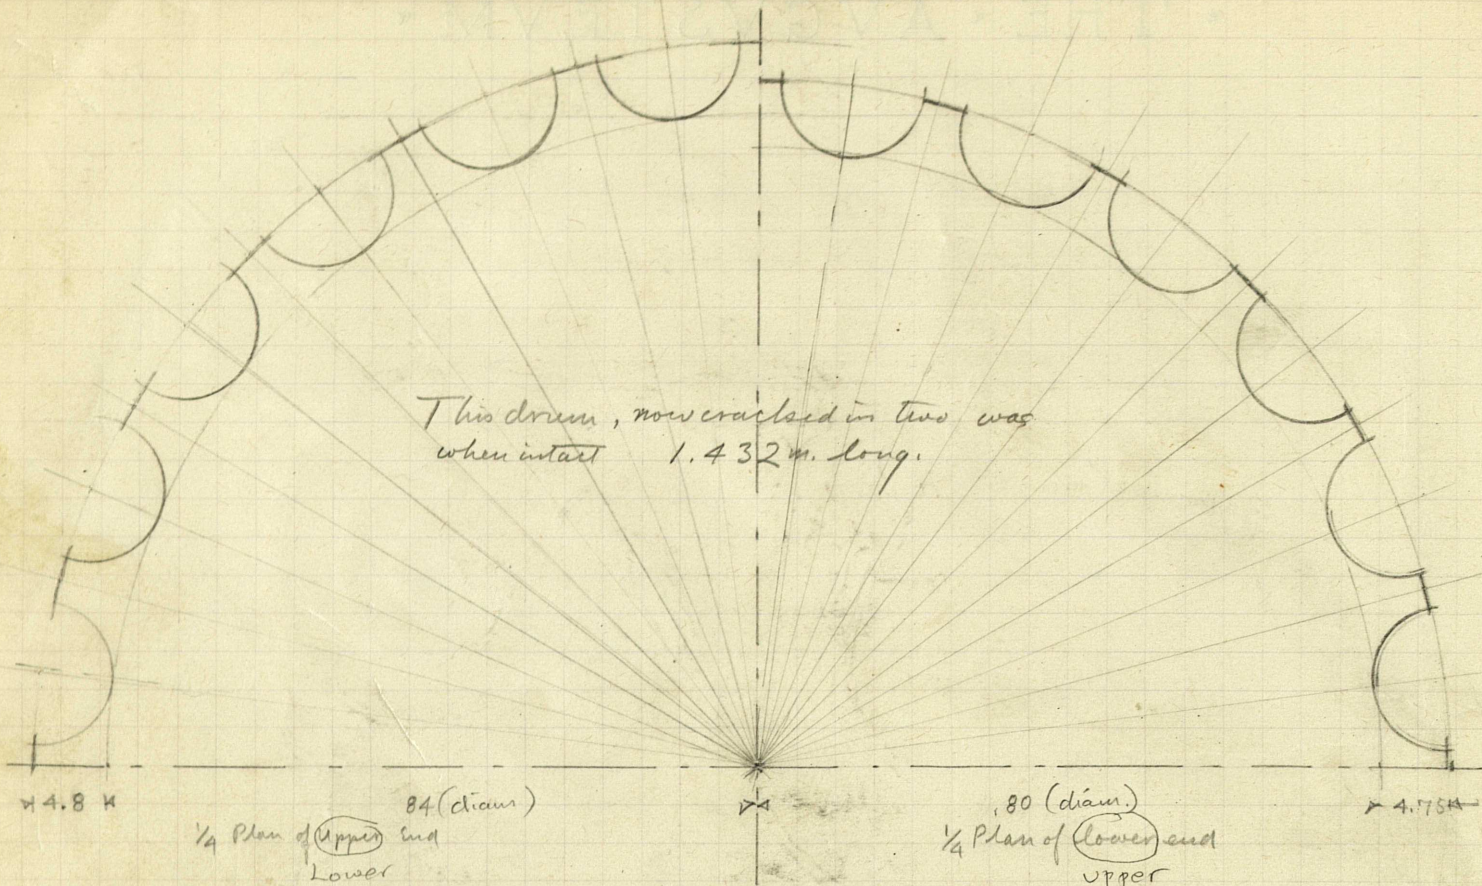 This drum, now cracked in two was
when intact 1.432 m. long.
4.8
84 (diam)
.80 (diam.)
4.75
1/4 Plan of Upper End
1/4 Plan of lower end
Lower
upper